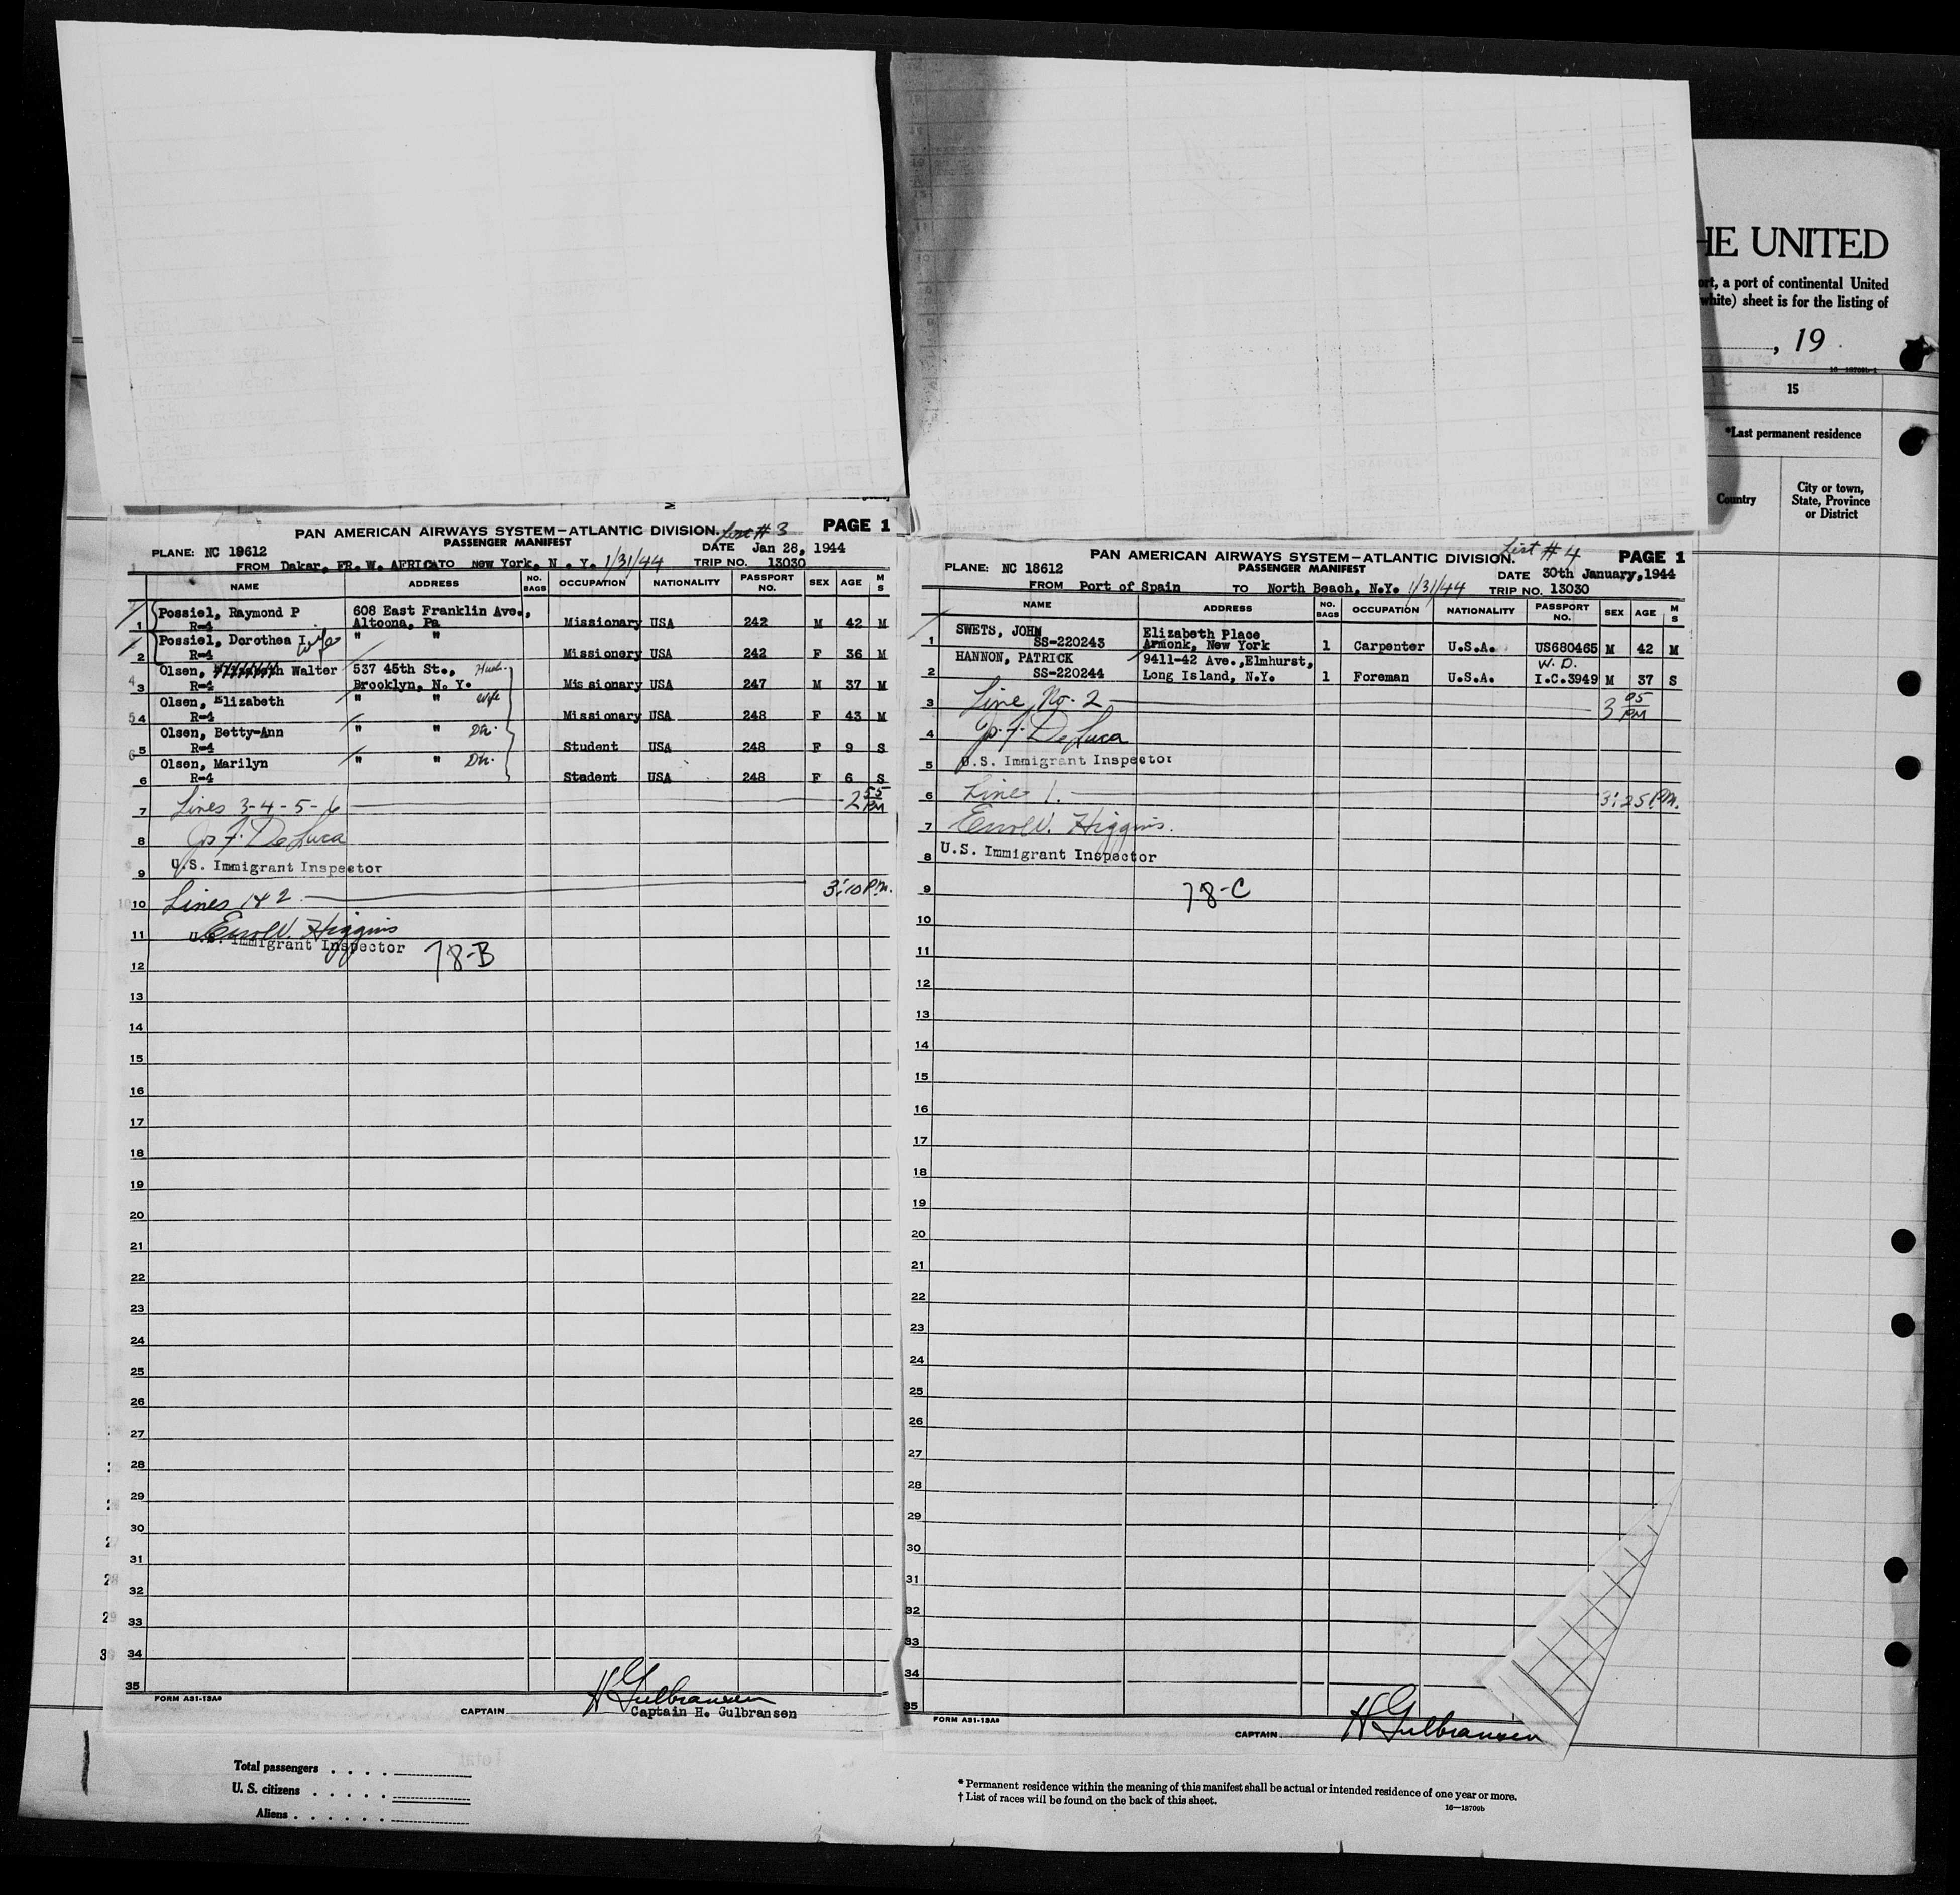 PAN AMERICAN AIRWAYS SYSTEM—ATLANTIC DIVISION. List # 3 PAGE 1
PASSENGER MANIFEST
PLANE: NC 18612 DATE Jan 28, 1944
FROM Dakar, FR. W. AFRICA TO New York, N. Y. 1/31/44 TRIP NO. 13030
NAME ADDRESS NO. BAGS OCCUPATION NATIONALITY PASSPORT NO. SEX AGE M S
1 Possiel, Raymond P 608 East Franklin Ave.,
R-4 Altoona, Pa Missionary USA 242 M 42 M
Possiel, Dorothea I Wife " "
2 R-4 Missionery USA 242 F 36 M
Olsen, Walter 537 45th St., Husb.
3 R-4 Brooklyn, N. Y. Missionary USA 247 M 37 M
Olsen, Elizabeth " " Wife
4 R-4 Missionary USA 248 F 43 M
Olsen, Betty-Ann " " Dtr.
5 R-4 Student USA 248 F 9 S
Olsen, Marilyn " " Dtr.
6 R-4 Student USA 248 F 6 S
7 Lines 3-4-5-6 2 55 PM
8 Jos F. De Luca
9 U.S. Immigrant Inspector
10 Lines 1 & 2 3:10 P.M.
11 Errol W. Higgins
U.S. Immigrant Inspector 78-B
12
13
14
15
16
17
18
19
20
21
22
23
24
25
26
27
28
29
30
31
32
33
34
35
FORM A31-13A
CAPTAIN H Gulbransen
Captain H. Gulbransen
PAN AMERICAN AIRWAYS SYSTEM—ATLANTIC DIVISION. List # 4 PAGE 1
PASSENGER MANIFEST
PLANE: NC 18612 DATE 30th January, 1944
FROM Port of Spain TO North Beach, N.Y. 1/31/44 TRIP NO. 13030
NAME ADDRESS NO. BAGS OCCUPATION NATIONALITY PASSPORT NO. SEX AGE M S
SWETS, JOHN Elizabeth Place
1 SS-220243 Armonk, New York 1 Carpenter U.S.A. US680465 M 42 M
HANNON, PATRICK 9411-42 Ave.,Elmhurst, W. D.
2 SS-220244 Long Island, N.Y. 1 Foreman U.S.A. I.C.3949 M 37 S
3 Line No. 2 3 05 PM
4 Jos. F. De Luca
5 U.S. Immigrant Inspector
6 Line 1. 3:25 P.M.
7 Errol W. Higgins.
8 U.S. Immigrant Inspector
9 78-C
10
11
12
13
14
15
16
17
18
19
20
21
22
23
24
25
26
27
28
29
30
31
32
33
34
35
FORM A31-13A
CAPTAIN H Gulbransen
HE UNITED
ort, a port of continental United
white) sheet is for the listing of
, 19
15
*Last permanent residence
Country City or town, State, Province or District
Total passengers
U. S. citizens
Aliens
* Permanent residence within the meaning of this manifest shall be actual or intended residence of one year or more.
† List of races will be found on the back of this sheet.
16—18709b